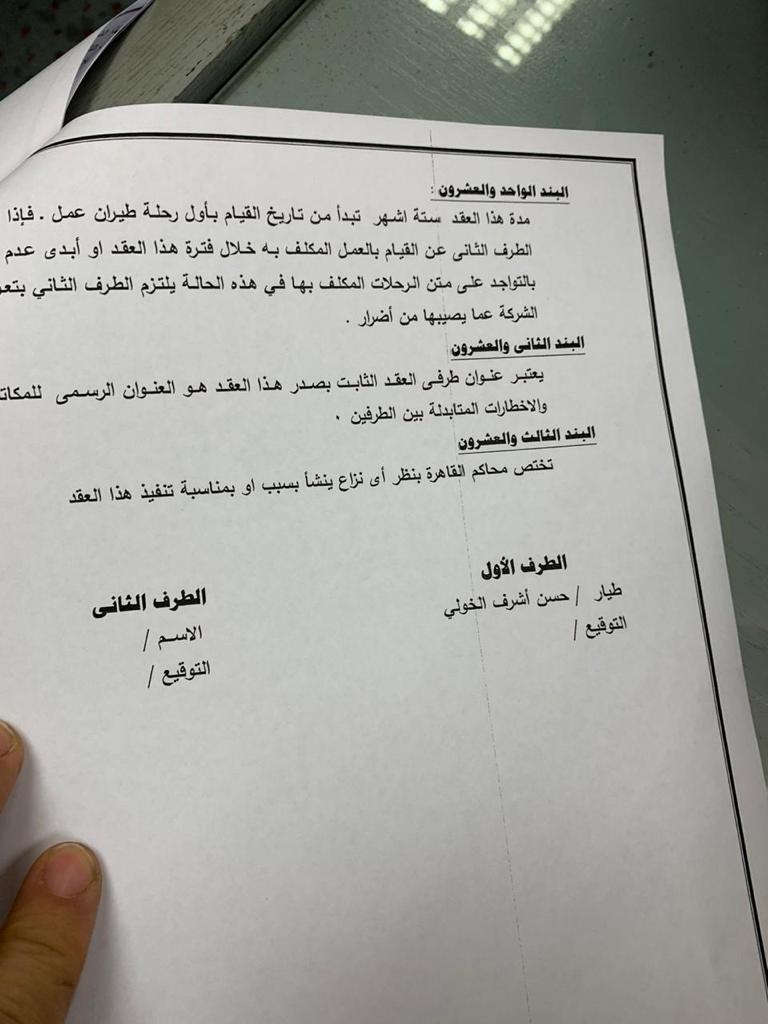 البند الواحد والعشرون :
مدة هذا العقد ستة اشهر تبدأ من تاريخ القيام بأول رحلة طيران عمل . فإذا
الطرف الثانى عن القيام بالعمل المكلف به خلال فترة هذا العقد او أبدى عدم
بالتواجد على متن الرحلات المكلف بها في هذه الحالة يلتزم الطرف الثاني
الشركة عما يصيبها من أضرار .
البند الثانى والعشرون
يعتبر عنوان طرفى العقد الثابت بصدر هذا العقد هو العنوان الرسمى
والاخطارات المتبادلة بين الطرفين .
البند الثالث والعشرون
تختص محاكم القاهرة بنظر أى نزاع ينشأ بسبب او بمناسبة تنفيذ هذا العقد
الطرف الأول
طيار / حسن أشرف الخولي
التوقيع /
الطرف الثانى
الاسم /
التوقيع /